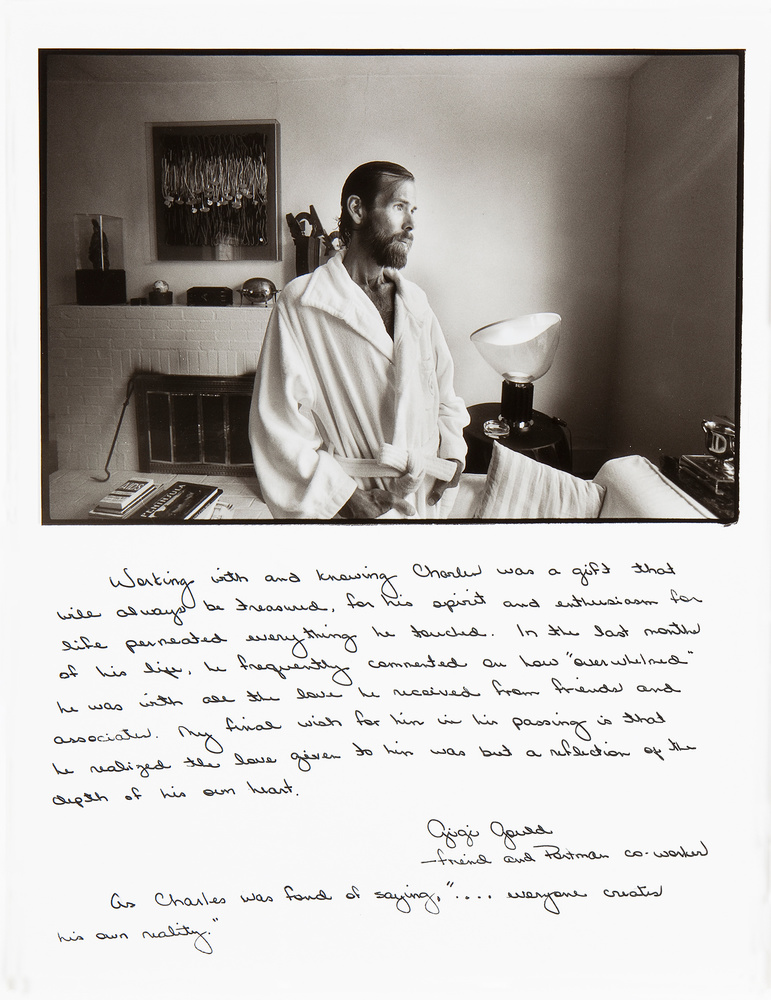 PENINSULA
Working with and knowing Charles was a gift that
will always be treasured, for his spirit and enthusiasm for
life permeated everything he touched. In the last months
of his life, he frequently commented on how "overwhelmed"
he was with all the love he received from friends and
associates. My final wish for him in his passing is that
he realized the love given to him was but a reflection of the
depth of his own heart.
Gigi Gould
-friend and Portman co-worker
As Charles was fond of saying, ".... everyone creates
his own reality."